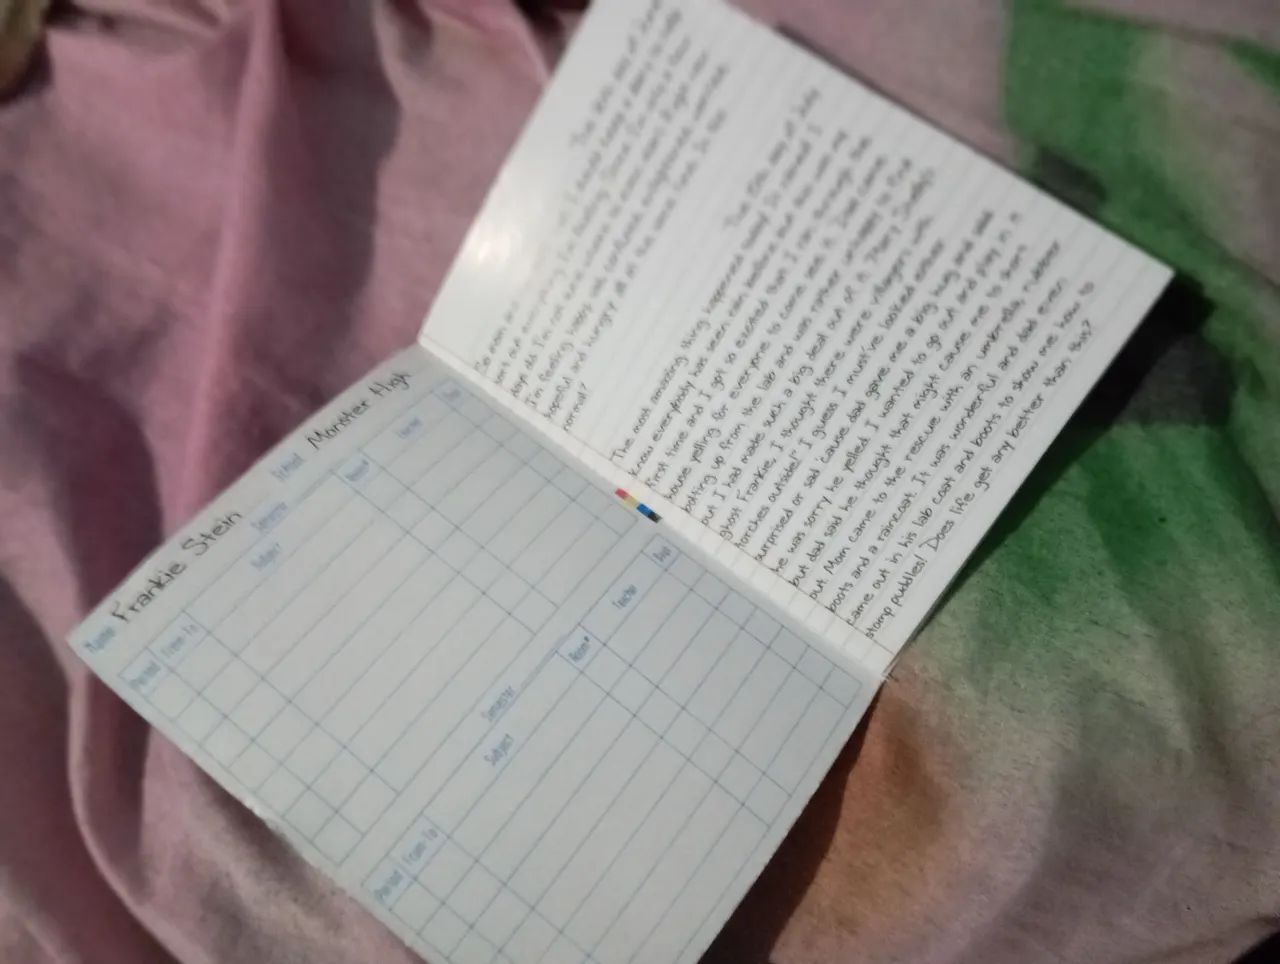 Name Frankie Stein School Monster High
Semester
Period From To Subject Room# Teacher Days
Semester
Period From To Subject Room# Teacher Days
The day of June
So mom and I should keep a diary to help
sort out everything I'm feeling. Since I'm only a few
days old I'm not sure what is and isn't. Right now
I'm feeling happy, sad, confused, enlightened, worried,
hopeful and hungry all at the same time. Is this
normal?
The day of July
The most amazing thing happened today! It rained! I
know everybody has seen rain before but this was my
first time and I got so excited that I ran through the
house yelling for everyone to come see it. Dad came
bolting up from the lab and was rather unhappy to find
out I had made such a big deal out of it. "Holy Deadly
ghost Frankie, I thought there were villagers with
torches outside!" I guess I must've looked either
surprised or sad 'cause dad gave me a big hug and said
he was sorry he yelled. I wanted to go out and play in it
but dad said he thought that might cause me to short
out. Mom came to the rescue with an umbrella, rubber
boots and a raincoat. It was wonderful and dad even
came out in his lab coat and boots to show me how to
stomp puddles! Does life get any better than this?